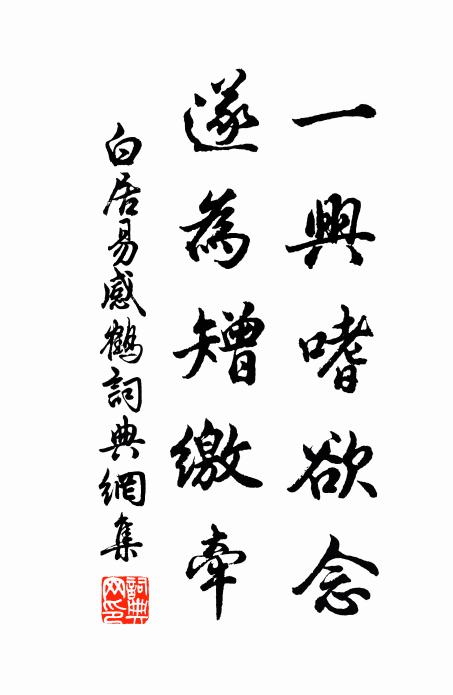 一興嗜欲念
遂為矰繳牽
白居易感鶴詞典網集
詞典網印